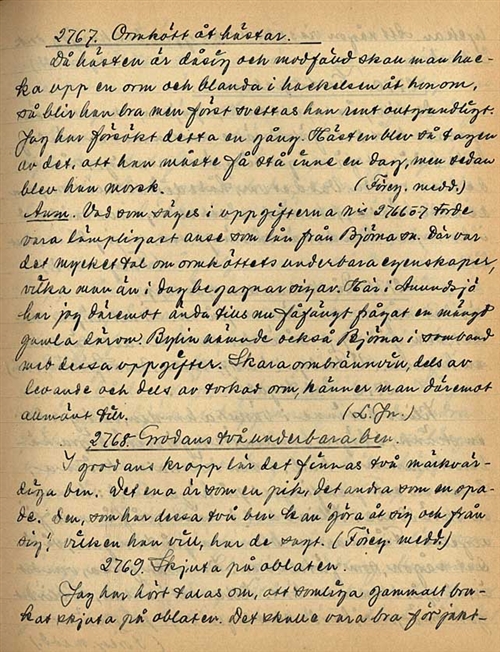 2767. Ormkött åt hästar.
Då hästen är dåsig och modfäld skall man hac-
ka upp en orm och blanda i hackelsen åt honom,
så blir han bra men först svettas han rent outgrundligt.
Jag har försökt detta en gång. Hästen blev så tagen
av det, att han måste få stå inne en dag, men sedan
blev han morsk. (Föreg. medd.)
Anm. Vad som säges i uppgifterna Nis 2766 o 7 torde
vara lämpligast anse som lån från Björna sn. Där var
det mycket tal om ormköttets underbara egenskaper,
vilka man än i dag begagnar sig av. Här i Anundsjö
har jag däremot ända tills nu fåfängt frågat en mängd
gamla därom. Bylin nämnde också Björna i samband
med dessa uppgifter. Skara ormbrännvin, dels av
levande och dels av torkad orm, känner man däremot
allmänt till. (L. Jn.)
2768. Grodans två underbara ben.
I grodans kropp lär det finnas två märkvär-
diga ben. Det ena är som en pik, det andra som en spa-
de. Den, som har dessa två ben kan "göra åt sig och från
sig", vilken han vill, har de sagt. (Föreg. medd.)
2769. Skjuta på oblaten.
Jag har hört talas om, att somliga gammalt bru-
kat skjuta på oblaten. Det skulle vara bra för jakt-